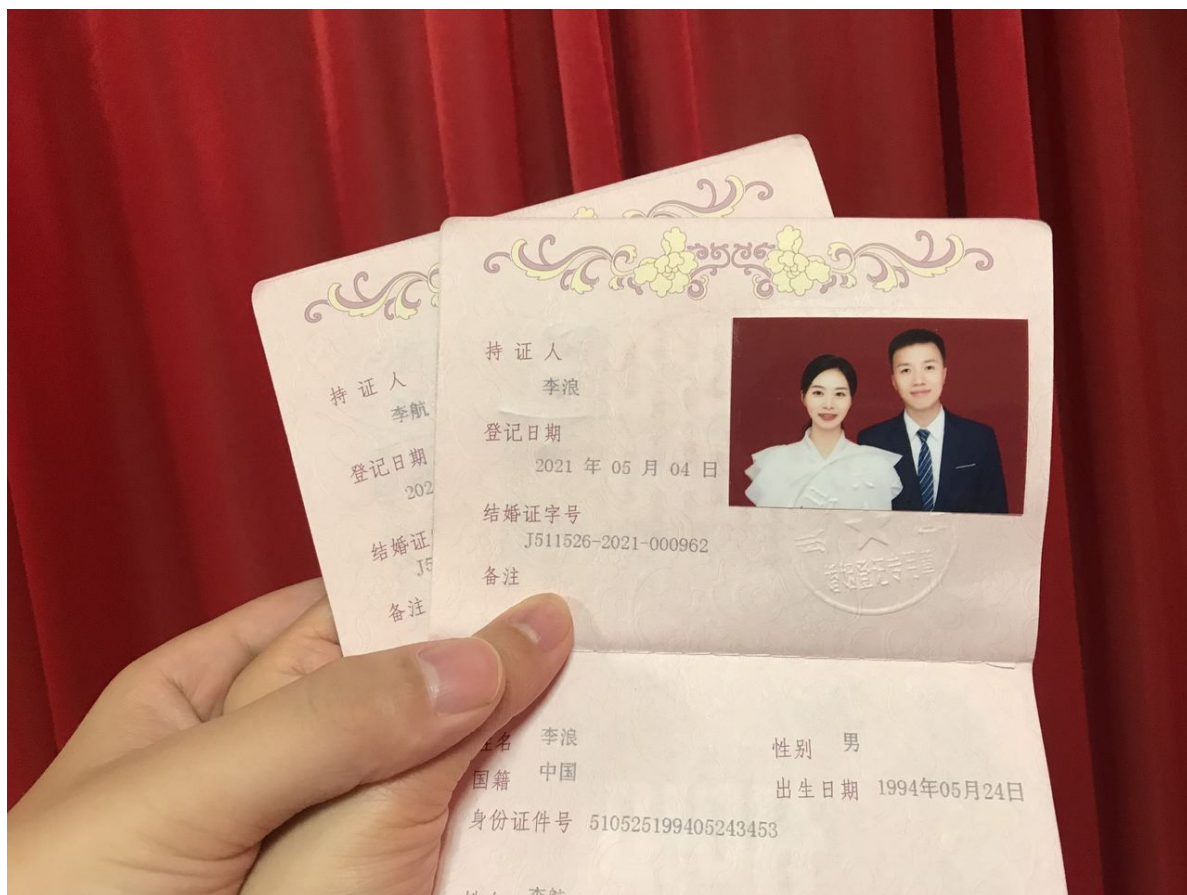 持证人
李航
登记日期
202
结婚证
J5
备注
持证人
李浪
登记日期
2021 年 05 月 04 日
结婚证字号
J511526-2021-000962
备注
姓名 李浪 性别 男
国籍 中国 出生日期 1994年05月24日
身份证件号 510525199405243453
李航